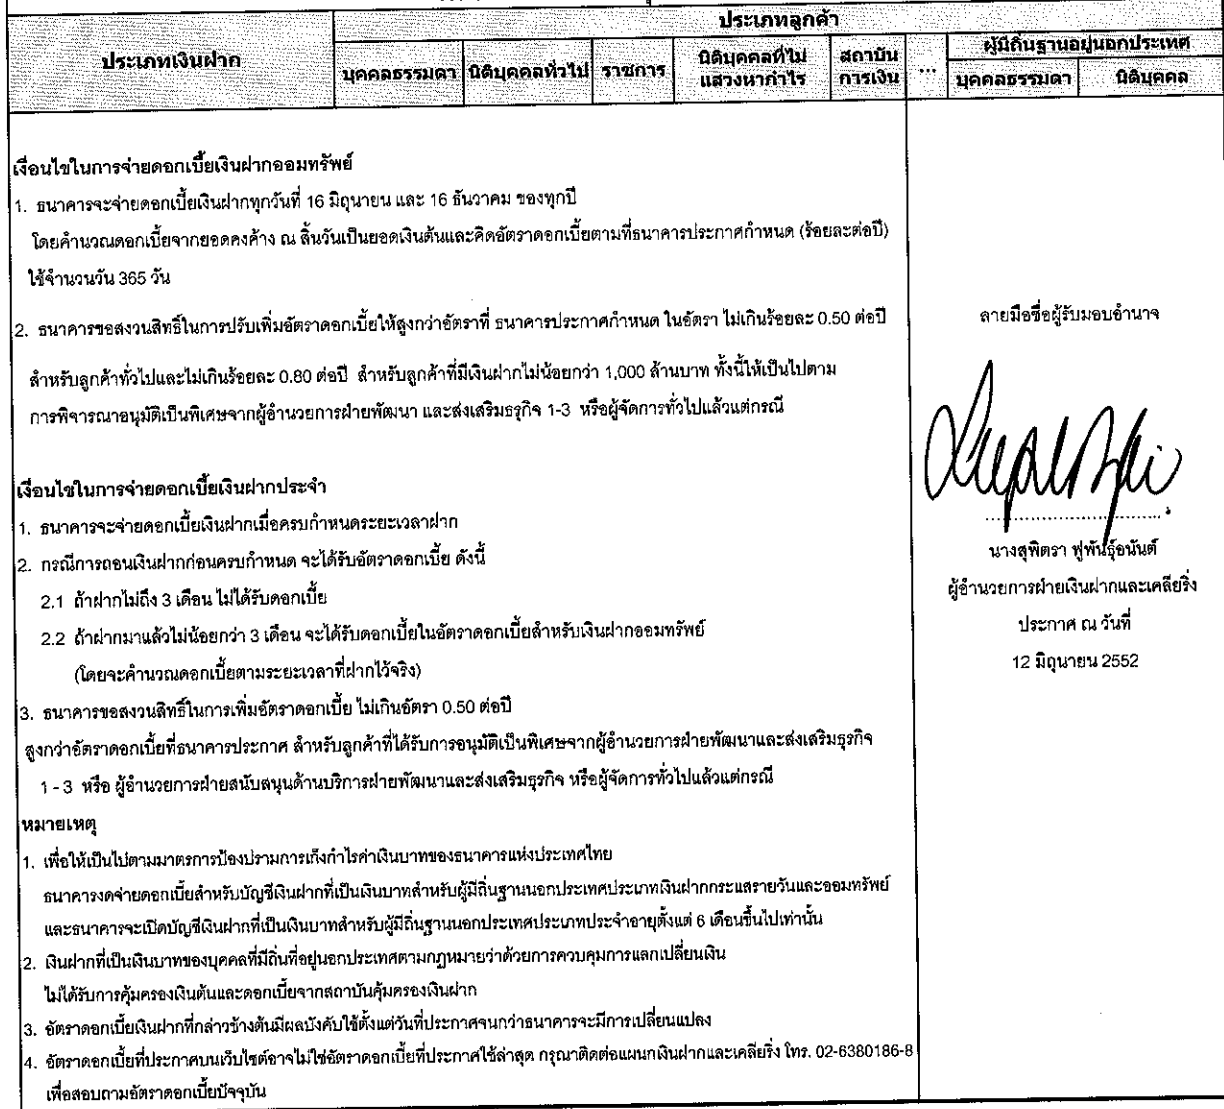 ประเภทลูกค้า
ประเภทเงินฝาก
บุคคลธรรมดา นิติบุคคลทั่วไป ราชการ นิติบุคคลที่ไม่แสวงหากำไร สถาบันการเงิน ... ผู้มีถิ่นฐานอยู่นอกประเทศ
บุคคลธรรมดา นิติบุคคล
เงื่อนไขในการจ่ายดอกเบี้ยเงินฝากออมทรัพย์
1. ธนาคารจะจ่ายดอกเบี้ยเงินฝากทุกวันที่ 16 มิถุนายน และ 16 ธันวาคม ของทุกปี
โดยคำนวณดอกเบี้ยจากยอดคงค้าง ณ สิ้นวันเป็นยอดเงินต้นและคิดอัตราดอกเบี้ยตามที่ธนาคารประกาศกำหนด (ร้อยละต่อปี)
ใช้จำนวนวัน 365 วัน
2. ธนาคารขอสงวนสิทธิ์ในการปรับเพิ่มอัตราดอกเบี้ยให้สูงกว่าอัตราที่ ธนาคารประกาศกำหนด ในอัตรา ไม่เกินร้อยละ 0.50 ต่อปี
สำหรับลูกค้าทั่วไปและไม่เกินร้อยละ 0.80 ต่อปี สำหรับลูกค้าที่มีเงินฝากไม่น้อยกว่า 1,000 ล้านบาท ทั้งนี้ให้เป็นไปตาม
การพิจารณาอนุมัติเป็นพิเศษจากผู้อำนวยการฝ่ายพัฒนา และส่งเสริมธุรกิจ 1-3 หรือผู้จัดการทั่วไปแล้วแต่กรณี
เงื่อนไขในการจ่ายดอกเบี้ยเงินฝากประจำ
1. ธนาคารจะจ่ายดอกเบี้ยเงินฝากเมื่อครบกำหนดระยะเวลาฝาก
2. กรณีการถอนเงินฝากก่อนครบกำหนด จะได้รับอัตราดอกเบี้ย ดังนี้
2.1 ถ้าฝากไม่ถึง 3 เดือน ไม่ได้รับดอกเบี้ย
2.2 ถ้าฝากมาแล้วไม่น้อยกว่า 3 เดือน จะได้รับดอกเบี้ยในอัตราดอกเบี้ยสำหรับเงินฝากออมทรัพย์
(โดยจะคำนวณดอกเบี้ยตามระยะเวลาที่ฝากไว้จริง)
3. ธนาคารขอสงวนสิทธิ์ในการเพิ่มอัตราดอกเบี้ย ไม่เกินอัตรา 0.50 ต่อปี
สูงกว่าอัตราดอกเบี้ยที่ธนาคารประกาศ สำหรับลูกค้าที่ได้รับการอนุมัติเป็นพิเศษจากผู้อำนวยการฝ่ายพัฒนาและส่งเสริมธุรกิจ
1 - 3 หรือ ผู้อำนวยการฝ่ายสนับสนุนด้านบริการฝ่ายพัฒนาและส่งเสริมธุรกิจ หรือผู้จัดการทั่วไปแล้วแต่กรณี
หมายเหตุ
1. เพื่อให้เป็นไปตามมาตรการป้องปรามการเก็งกำไรค่าเงินบาทของธนาคารแห่งประเทศไทย
ธนาคารงดจ่ายดอกเบี้ยสำหรับบัญชีเงินฝากที่เป็นเงินบาทสำหรับผู้มีถิ่นฐานนอกประเทศประเภทเงินฝากกระแสรายวันและออมทรัพย์
และธนาคารจะเปิดบัญชีเงินฝากที่เป็นเงินบาทสำหรับผู้มีถิ่นฐานนอกประเทศประเภทประจำอายุตั้งแต่ 6 เดือนขึ้นไปเท่านั้น
2. เงินฝากที่เป็นเงินบาทของบุคคลที่มีถิ่นที่อยู่นอกประเทศตามกฎหมายว่าด้วยการควบคุมการแลกเปลี่ยนเงิน
ไม่ได้รับการคุ้มครองเงินต้นและดอกเบี้ยจากสถาบันคุ้มครองเงินฝาก
3. อัตราดอกเบี้ยเงินฝากที่กล่าวข้างต้นมีผลบังคับใช้ตั้งแต่วันที่ประกาศจนกว่าธนาคารจะมีการเปลี่ยนแปลง
4. อัตราดอกเบี้ยที่ประกาศบนเว็บไซต์อาจไม่ใช่อัตราดอกเบี้ยที่ประกาศใช้ล่าสุด กรุณาติดต่อแผนกเงินฝากและเคลียริ่ง โทร. 02-6380186-8
เพื่อสอบถามอัตราดอกเบี้ยปัจจุบัน
ลายมือชื่อผู้รับมอบอำนาจ
นางสุพิตรา ฟูพันธุ์อนันต์
ผู้อำนวยการฝ่ายเงินฝากและเคลียริ่ง
ประกาศ ณ วันที่
12 มิถุนายน 2552